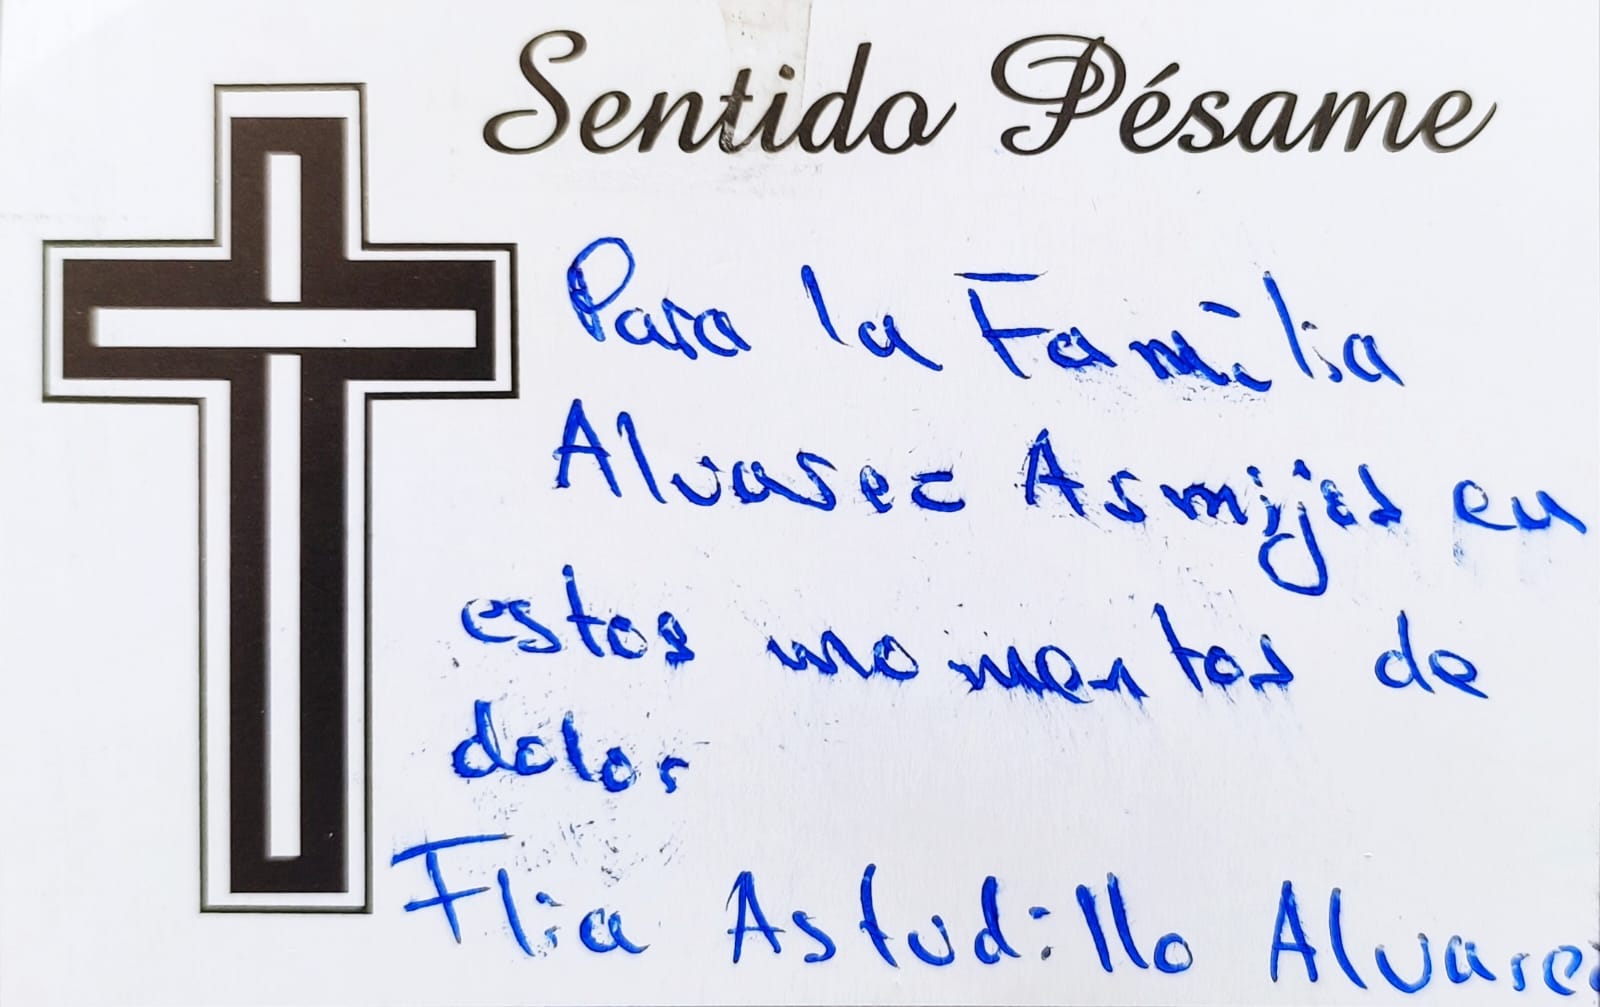 Sentido Pésame
Para la Familia
Alvarez Asmijes en
estos momentos de
dolor
Flia Astudillo Alvarez